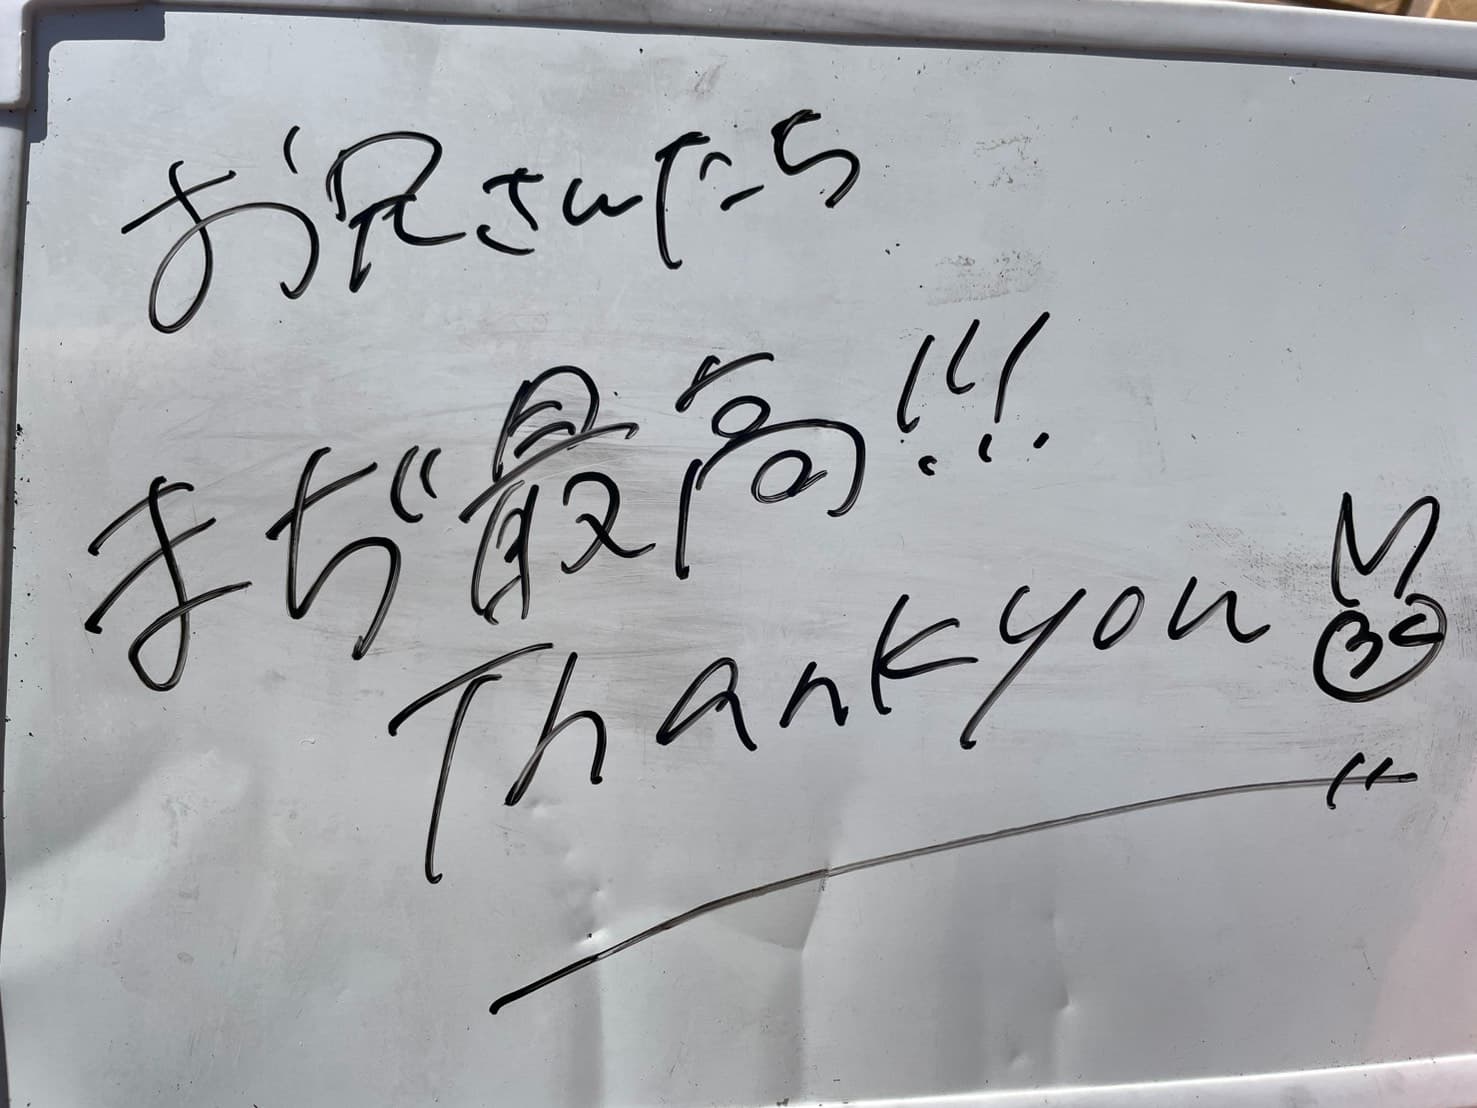 お兄さんたち
まぢ最高!!!
Thank you